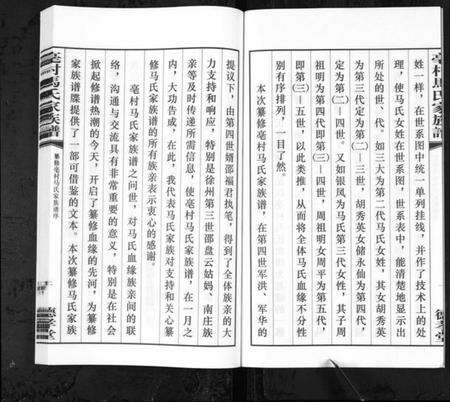 亳村馬氏家族譜
姓一样，在世系图中统一单列挂线，并作了技术上的处
理，使马氏女姓在世系图、世系表中，能清楚地显示出
所处的世、代。如三大为第二代马氏女姓，其女胡秀英
为第三代定为第㈡—三世，胡秀英女储永仙为第四代，
定为第㈡—四世。又如银凤为马氏第三代女姓，其子周
祖明为第四代即第㈢—四世，周祖明女周平为第五代，
即第㈢—五世，以此类推，从而将全体马氏血缘不分性
别有序排列，一目了然。
本次纂修亳村马氏家族谱，在第四世军洪、军华的
德孝堂
提议下，由第四世婿邵福君找笔，得到了全体族亲的大
力支持和响应，特别是徐州第三世邵盘云姑妈、南庄族
亲等及时传递所需信息，使亳村马氏家族谱，在一月之
内，大功告成，在此，我代表马氏家族对支持和关心纂
修马氏家族谱的所有族亲表示衷心的感谢。
亳村马氏家族谱之问世，对马氏血缘族亲间的联
络，沟通与交流具有非常重要的意义，特别是在社会
掀起修谱热潮的今天，开启了纂修血缘的先河，为纂修
家族谱牒提供了一部可借鉴的文本。本次纂修马氏家族
亳村馬氏家族譜
纂修亳村马氏家族谱序
德孝堂